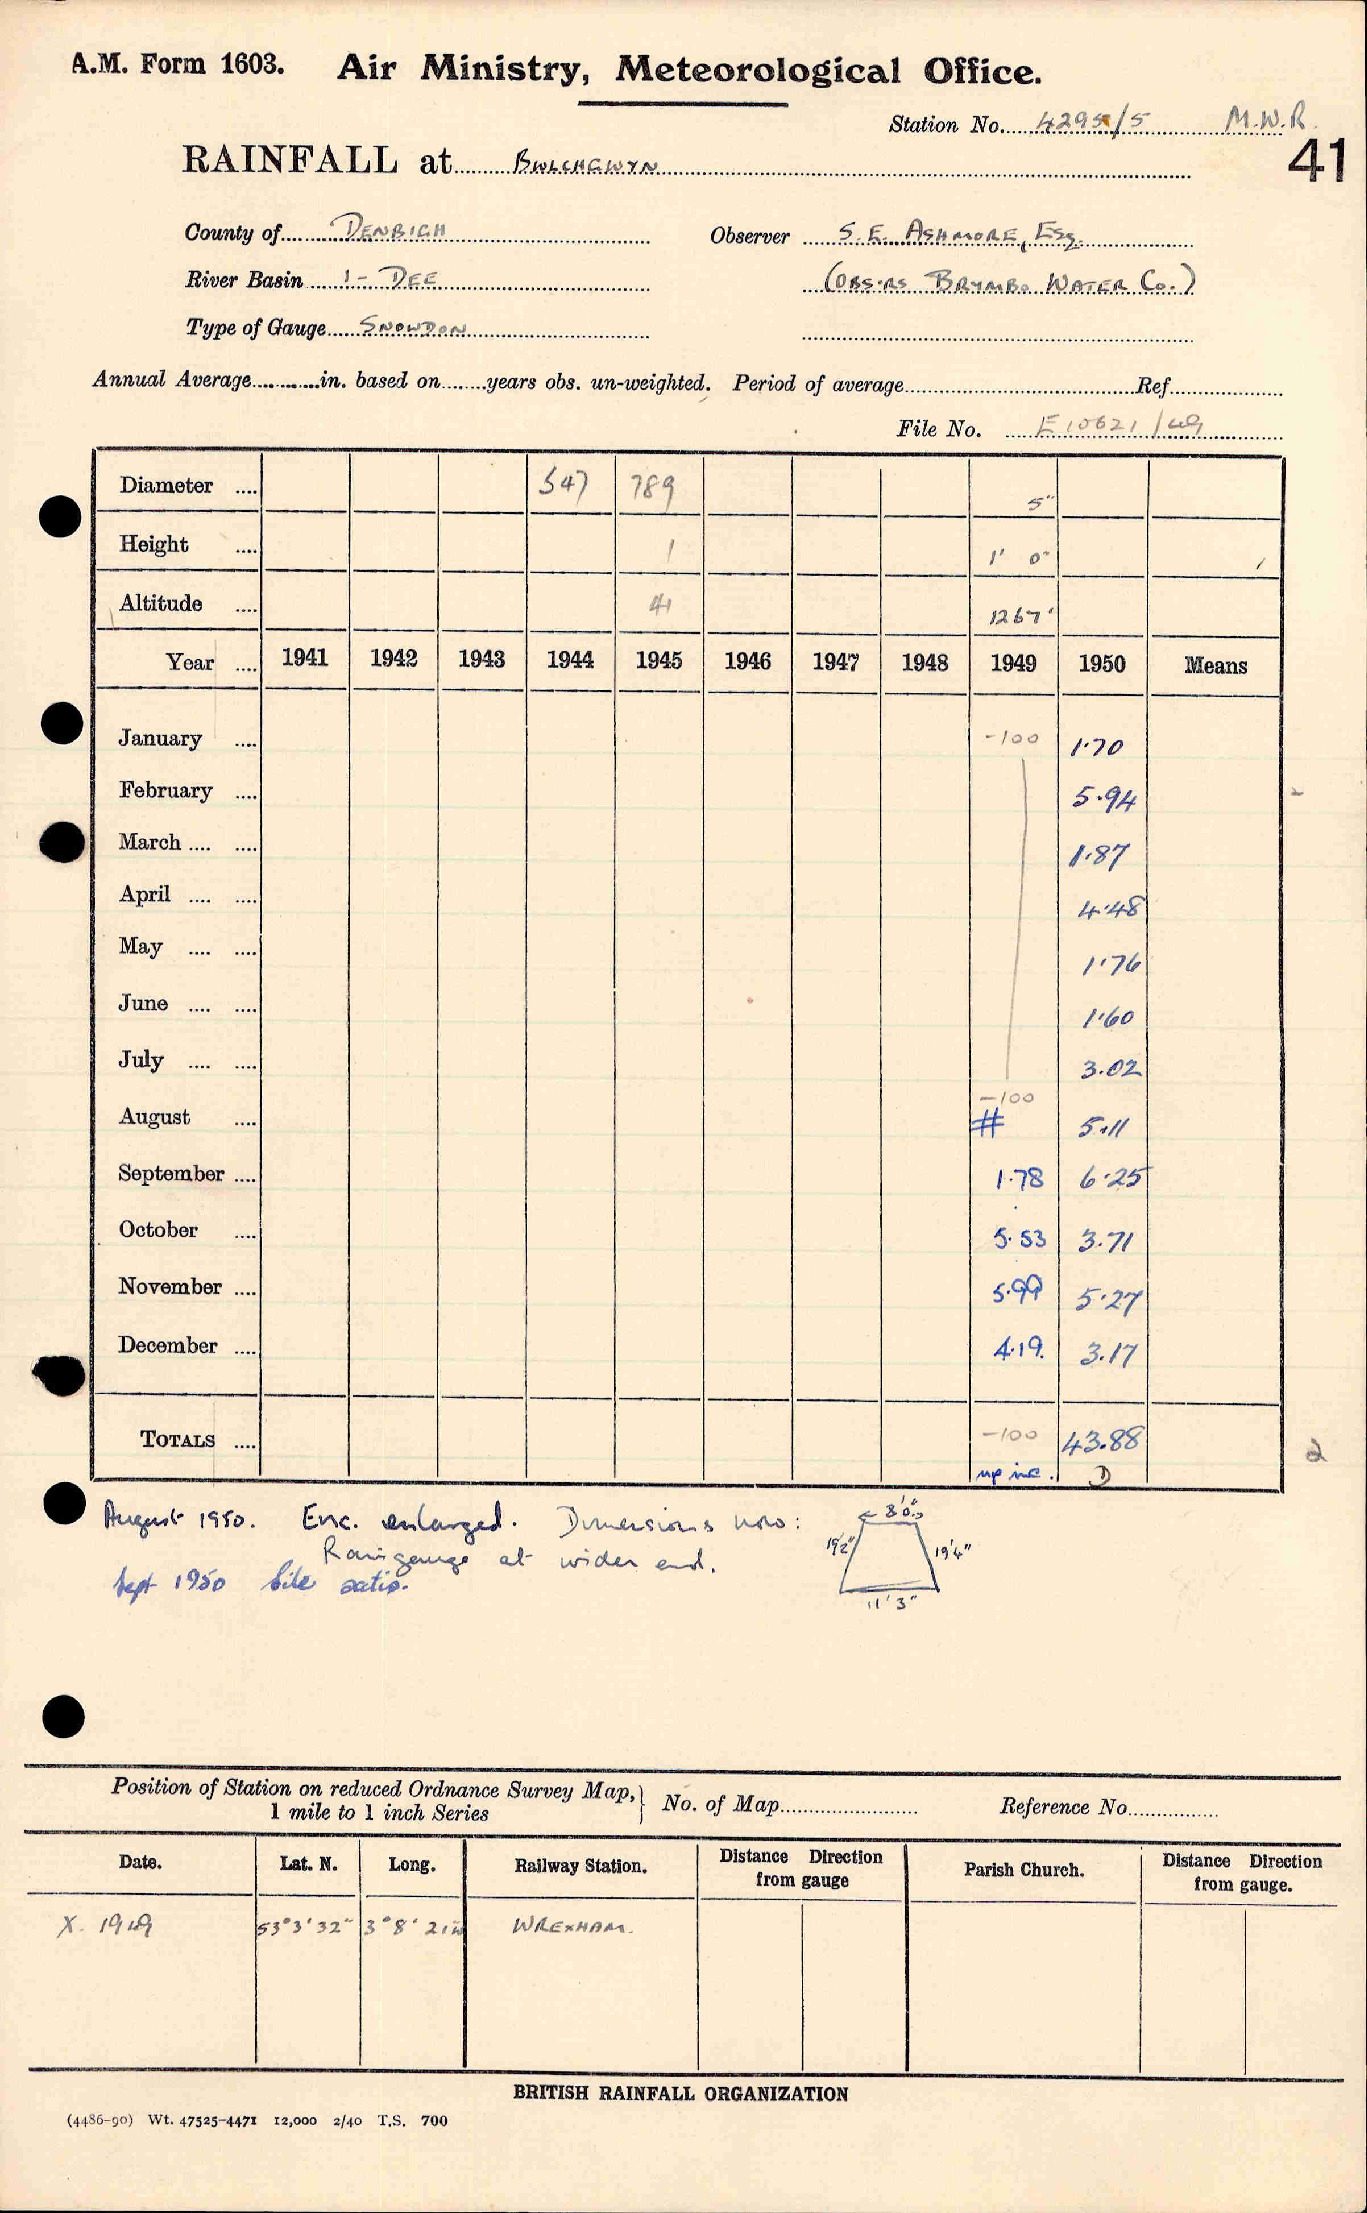 A.M. Form 1603. Air Ministry, Meteorological Office.
Station No. 4295/5 M.W.R.
41
RAINFALL at BWLCHGWYN
County of DENBIGH Observer S. E. ASHMORE, Esq.
River Basin 1 - DEE (OBS·RS BRYMBO WATER Co.)
Type of Gauge SNOWDON
Annual Average in. based on years obs. un-weighted. Period of average Ref.
File No. E10621/49
Diameter .... 547 789 5"
Height .... 1 1' 0"
Altitude .... 41 1267'
Year .... 1941 1942 1943 1944 1945 1946 1947 1948 1949 1950 Means
January .... -100 1·70
February .... 5·94
March .... .... 1·87
April .... .... 4·48
May .... .... 1·76
June .... .... 1·60
July .... .... 3·02
August .... -100 # 5·11
September .... 1·78 6·25
October .... 5·53 3·71
November .... 5·99 5·27
December .... 4·19 3·17
TOTALS .... -100 43·88 2
inc. D
August 1950. Enc. enlarged. Dimensions now: 8'0"
Raingauge at wider end. 19'2" 19'4"
Sept 1950 Site satis. 11'3"
Position of Station on reduced Ordnance Survey Map, 1 mile to 1 inch Series } No. of Map Reference No.
Date. Lat. N. Long. Railway Station. Distance Direction from gauge Parish Church. Distance Direction from gauge.
X. 1949 53°3'32" 3°8'21W WREXHAM.
BRITISH RAINFALL ORGANIZATION
(4486-90) Wt. 47525-4471 12,000 2/40 T.S. 700